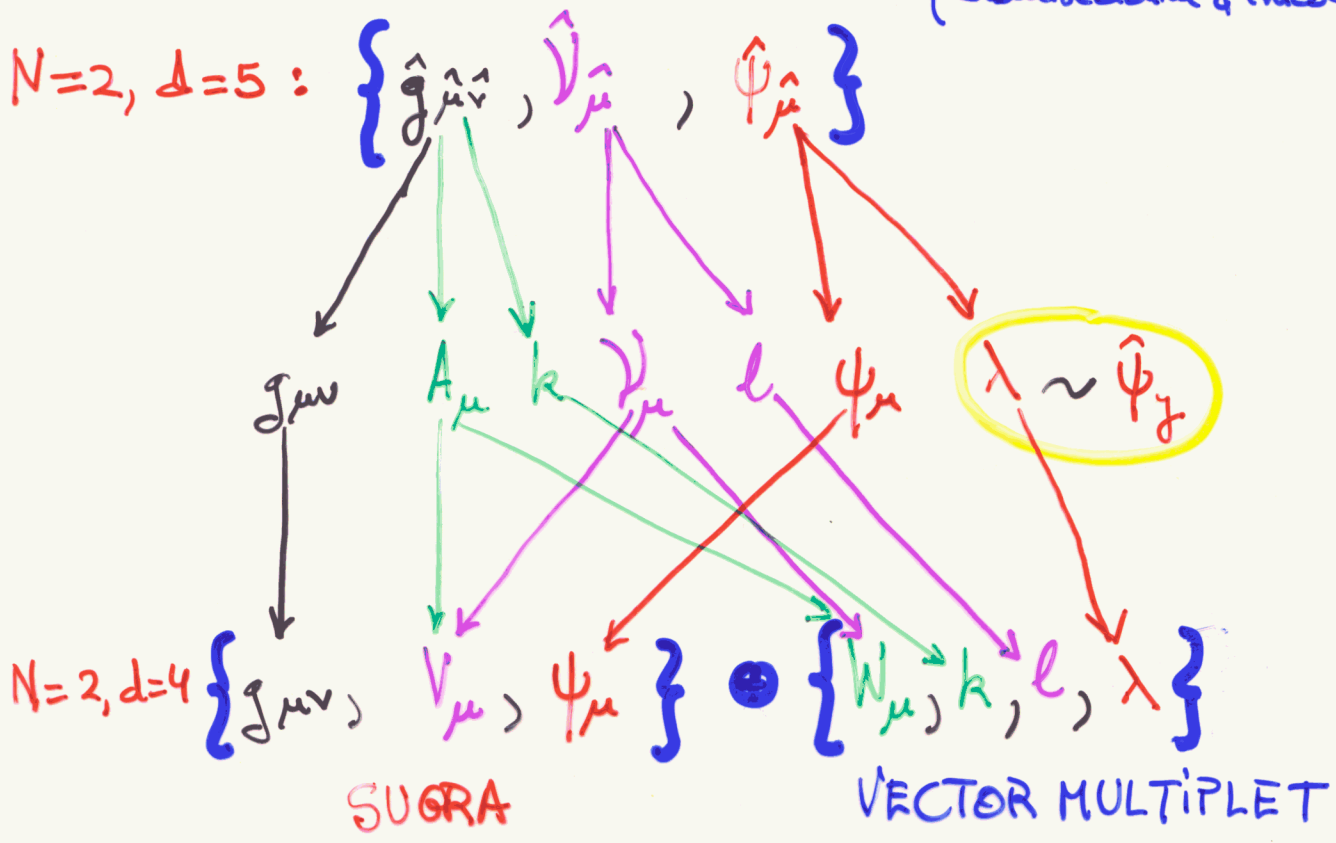 N=2, d=5 : { ĝ_μ̂ν̂ , V̂_μ̂ , ψ̂_μ̂ }
g_μν A_μ k V_μ l ψ_μ λ ~ ψ̂_y
N=2, d=4 { g_μν, V_μ, ψ_μ } ⊕ { W_μ, k, l, λ }
SUGRA VECTOR MULTIPLET